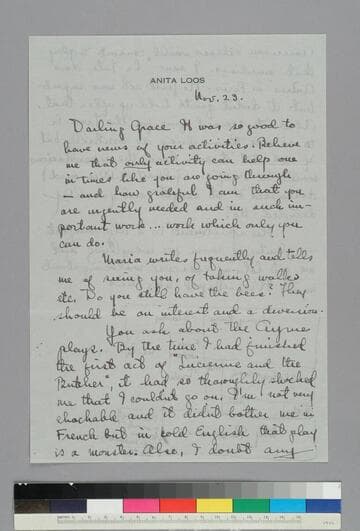 ANITA LOOS
Nov. 23.
Darling Grace It was so good to
have news of your activities. Believe
me that only activity can help one
in times like you are going through
— and how grateful I am that you
are urgently needed and in such im-
portant work... work which only you
can do.
Maria writes frequently and tells
me of seeing you, of taking walks
etc. Do you still have the bees? They
should be an interest and a diversion.
You ask about the Ayme
plays. By the time I had finished
the first act of "Lucienne and the
Butcher", it had so thoroughly shocked
me that I couldn't go on. I'm not very
shockable and it didn't bother me in
French but in cold English that play
is a monster. Also, I doubt any